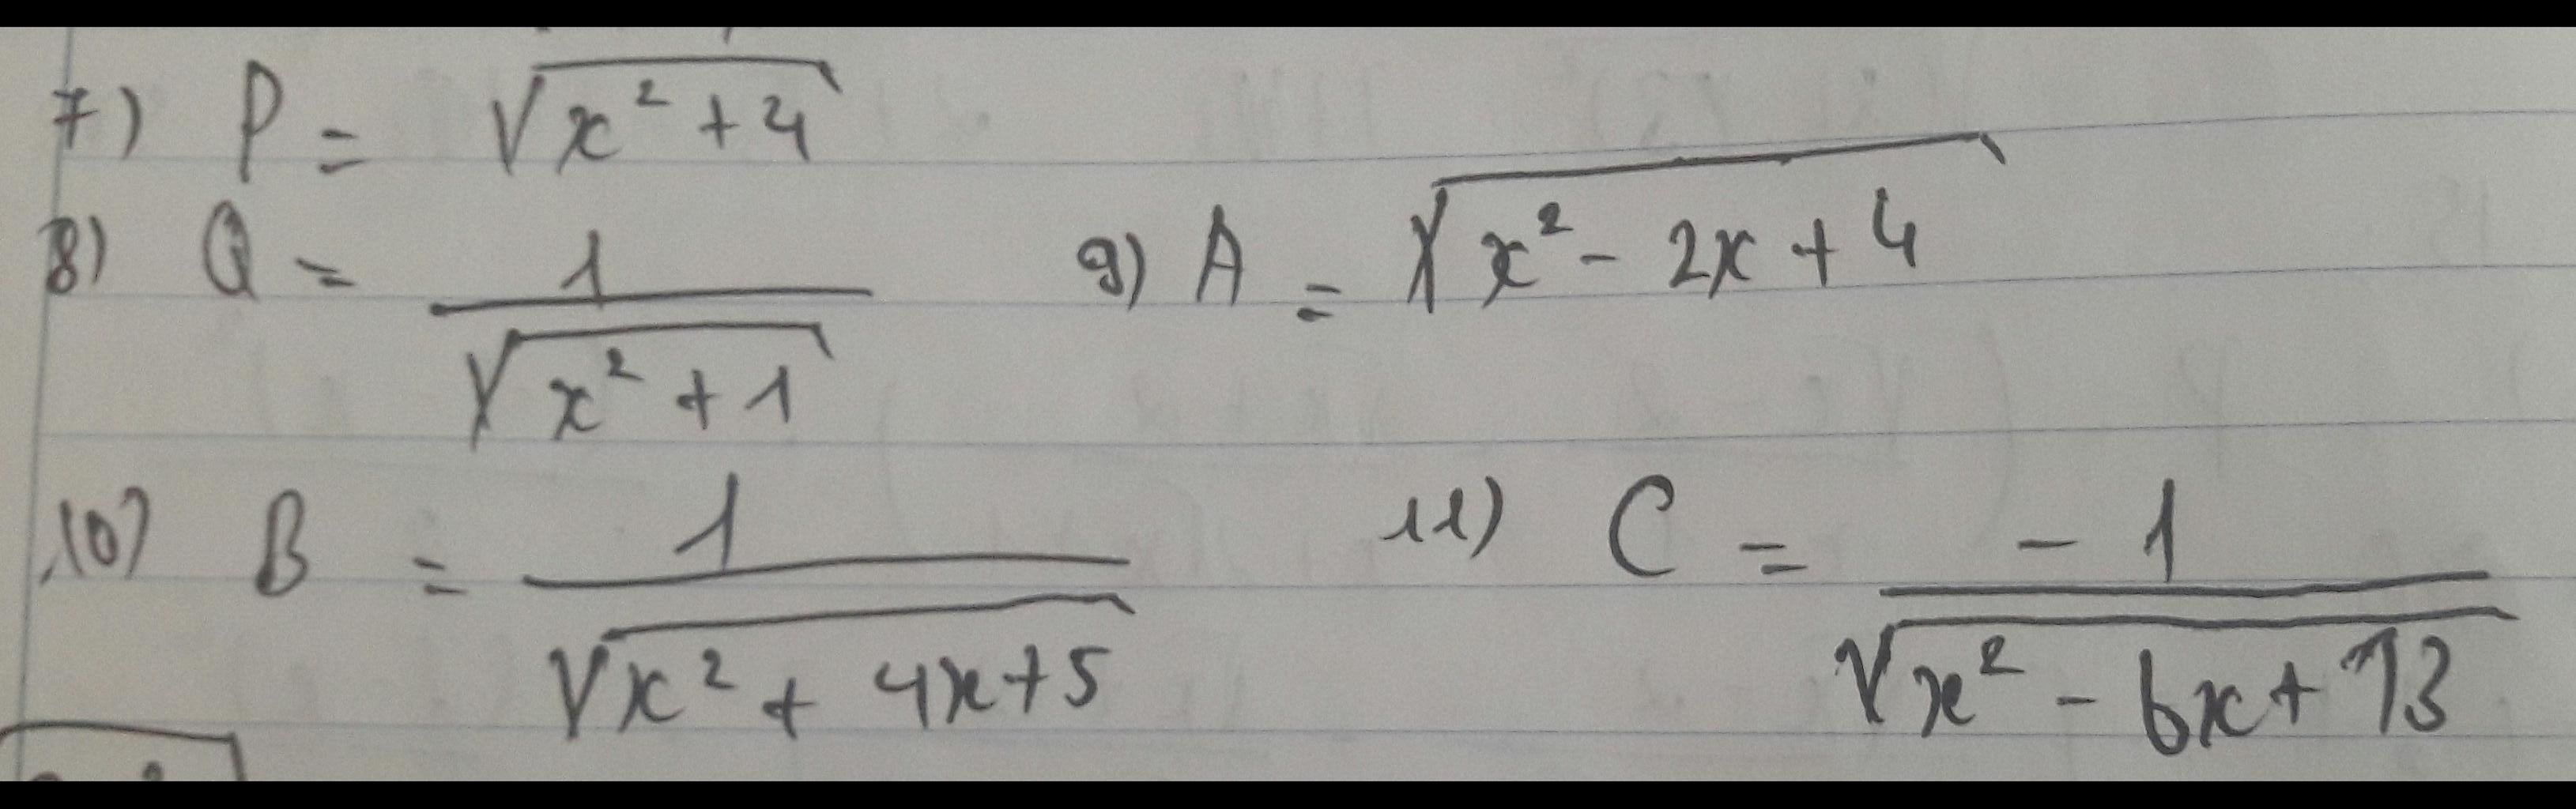 7) P = √(x² + 4)
8) Q = 1/√(x² + 1) 9) A = √(x² - 2x + 4)
10) B = 1/√(x² + 4x + 5) 11) C = -1/√(x² - 6x + 13)